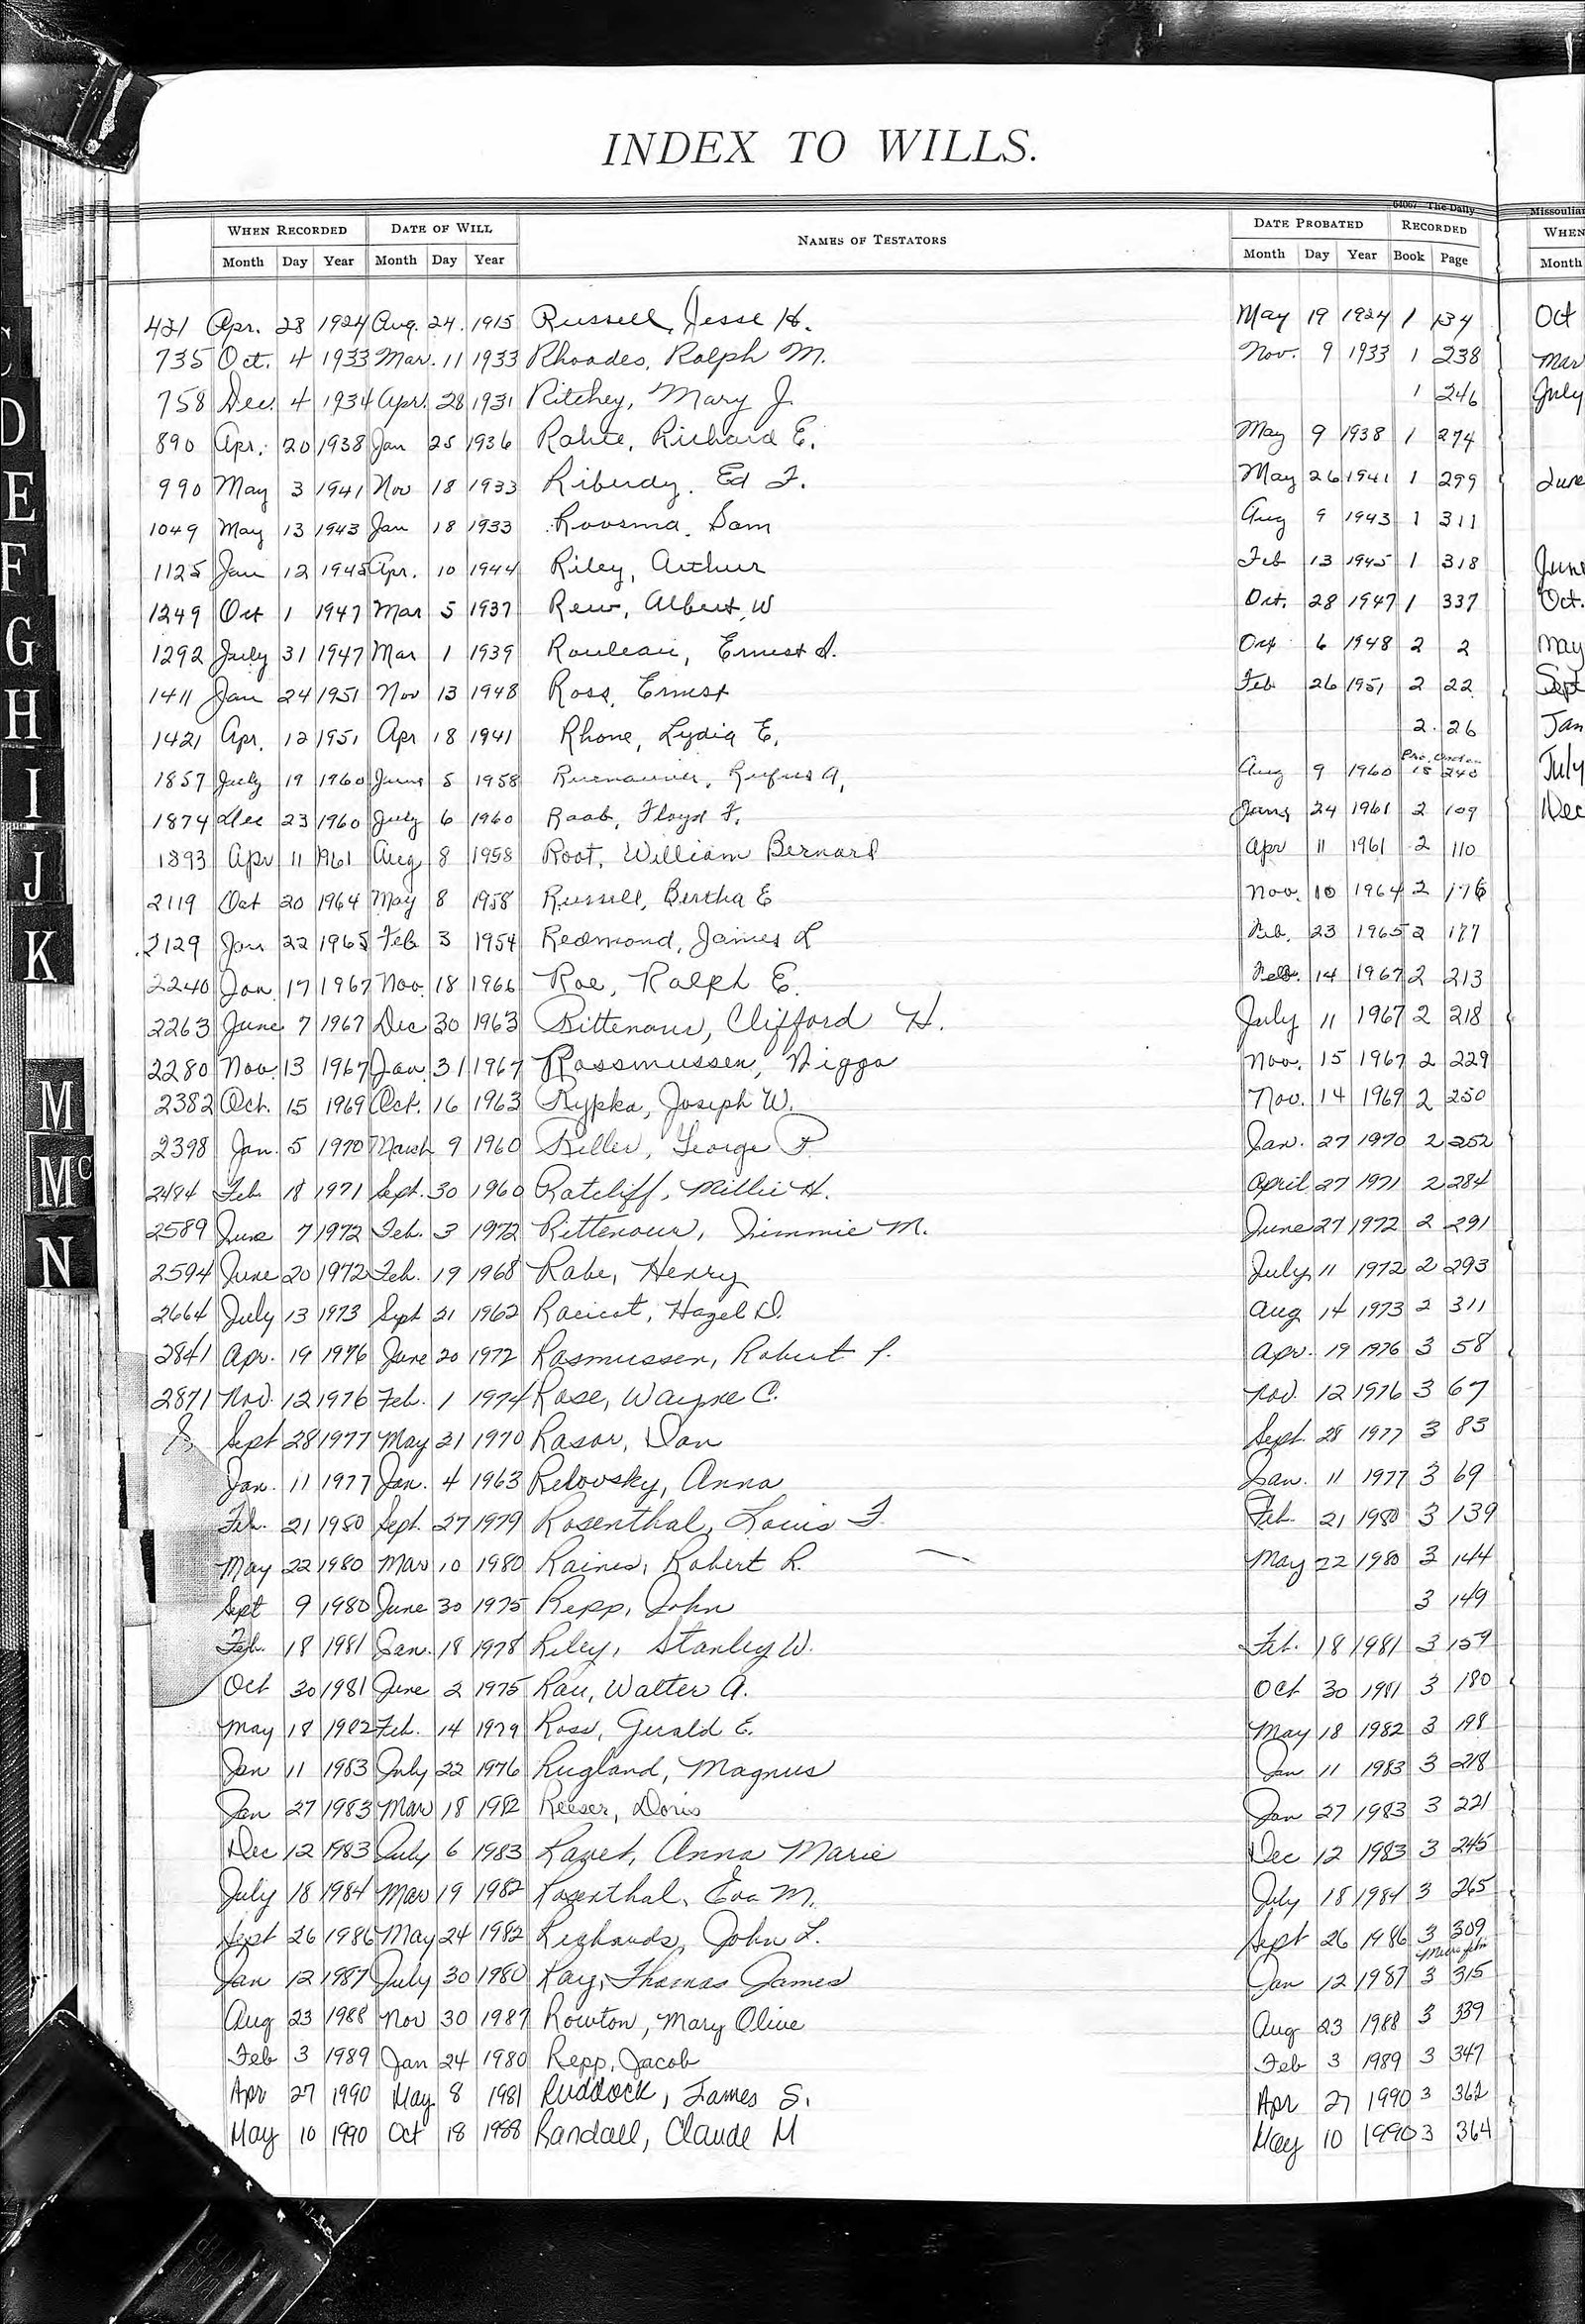 INDEX TO WILLS.
64067 The Daily Missoulian
WHEN RECORDED DATE OF WILL NAMES OF TESTATORS DATE PROBATED RECORDED WHEN
Month Day Year Month Day Year Month Day Year Book Page Month
421 Apr. 28 1924 Aug. 24. 1915 Russell, Jesse H. May 19 1924 1 134 Oct
735 Oct. 4 1933 Mar. 11 1933 Rhoades, Ralph M. Nov. 9 1933 1 238 Mar
758 Dec. 4 1934 Apr. 28 1931 Ritchey, Mary J. 1 246 July
890 Apr. 20 1938 Jan 25 1936 Richard E. May 9 1938 1 274
990 May 3 1941 Nov 18 1933 Riberdy, Ed F. May 26 1941 1 299 June
1049 May 13 1943 Jan 18 1933 Roosma, Sam Aug 9 1943 1 311
1125 Jan 12 1945 Apr. 10 1944 Riley, Arthur Feb 13 1945 1 318 June
1249 Oct 1 1947 Mar 5 1937 Rew, Albert W Oct. 28 1947 1 337 Oct.
1292 July 31 1947 Mar 1 1939 Rouleau, Ernest Oct 6 1948 2 2 May
1411 Jan 24 1951 Nov 13 1948 Ross, Ernest Feb 26 1951 2 22 Sept
1421 Apr. 12 1951 Apr 18 1941 Rhone, Lydia E. 2. 26 Jan
1857 July 19 1960 June 5 1958 Rufus A. Aug 9 1960 15 240 July
1874 Dec 23 1960 July 6 1960 Raab, Floyd F. 24 1961 2 109 Dec
1893 Apr 11 1961 Aug 8 1958 Root, William Bernard Apr 11 1961 2 110
2119 Oct 20 1964 May 8 1958 Russell, Bertha E Nov. 10 1964 2 176
2129 Jan 22 1965 Feb 3 1954 Redmond, James L Feb. 23 1965 2 177
2240 Jan. 17 1967 Nov. 18 1966 Roe, Ralph E. Feb. 14 1967 2 213
2263 June 7 1967 Dec 30 1963 Rittenour, Clifford H. July 11 1967 2 218
2280 Nov. 13 1967 Jan. 31 1967 Rassmussen, Viggo Nov. 15 1967 2 229
2382 Oct. 15 1969 Oct. 16 1963 Rypka, Joseph W. Nov. 14 1969 2 250
2398 Jan. 5 1970 March 9 1960 George P. Jan. 27 1970 2 252
2484 Feb. 18 1971 Sept. 30 1960 Ratcliff, Millie H. April 27 1971 2 284
2589 June 7 1972 Feb. 3 1972 Rittenour, Jimmie M. June 27 1972 2 291
2594 June 20 1972 Feb. 19 1968 Rabe, Henry July 11 1972 2 293
2664 July 13 1973 Sept 21 1962 Racicot, Hazel D. Aug 14 1973 2 311
2841 Apr. 19 1976 June 20 1972 Rasmussen, Robert P. Apr. 19 1976 3 58
2871 Nov. 12 1976 Feb. 1 1974 Rose, Wayne C. Nov. 12 1976 3 67
Sept 28 1977 May 21 1970 Rasor, Dan Sept. 28 1977 3 83
Jan. 11 1977 Jan. 4 1963 Relovsky, Anna Jan. 11 1977 3 69
Feb. 21 1980 Sept. 27 1979 Rosenthal, Louis F. Feb. 21 1980 3 139
May 22 1980 Mar 10 1980 Raines, Robert R. May 22 1980 3 144
Sept 9 1980 June 30 1975 Repp, John 3 149
Feb. 18 1981 Jan. 18 1978 Riley, Stanley W. Feb. 18 1981 3 159
Oct 30 1981 June 2 1975 Rau, Walter A. Oct 30 1981 3 180
May 18 1982 Feb. 14 1979 Ross, Gerald E. May 18 1982 3 198
Jan 11 1983 July 22 1976 Rugland, Magnus Jan 11 1983 3 218
Jan 27 1983 Mar 18 1982 Reeser, Doris Jan 27 1983 3 221
Dec 12 1983 July 6 1983 Ravet, Anna Marie Dec 12 1983 3 245
July 18 1984 Mar 19 1982 Rosenthal, Eva M. July 18 1984 3 265
Sept 26 1986 May 24 1982 Richards, John L. Sept 26 1986 3 309
Jan 12 1987 July 30 1980 Ray, Thomas James Jan 12 1987 3 315
Aug 23 1988 Nov 30 1987 Rowton, Mary Olive Aug 23 1988 3 339
Feb 3 1989 Jan 24 1980 Repp, Jacob Feb 3 1989 3 347
Apr 27 1990 May 8 1981 Ruddock, James S. Apr 27 1990 3 362
May 10 1990 Oct 18 1988 Randall, Claude M May 10 1990 3 364
D
E
F
G
H
I
J
K
M
Mc
N